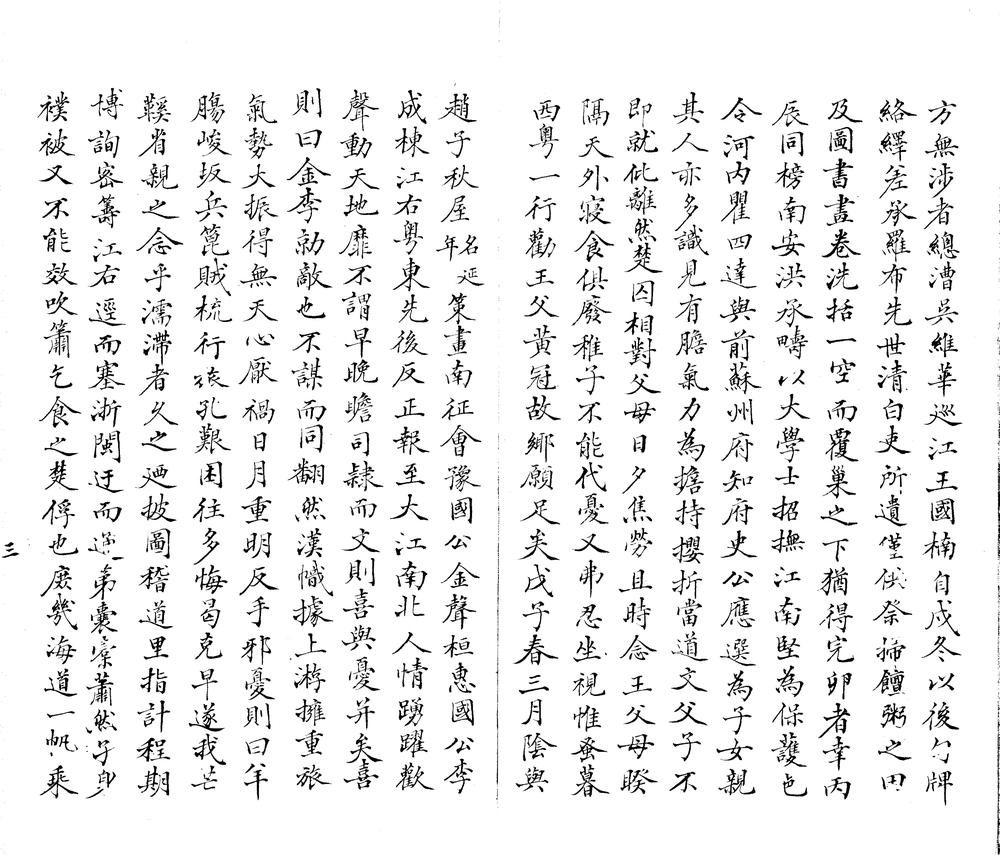 方無涉者總漕吳維華巡江王國楠自戍冬以後勾牌
絡繹差承羅布先世清白吏所遺僅供祭掃饘粥之田
及圖書畫卷洗括一空而覆巢之下猶得完卵者幸丙
辰同榜南安洪承疇以大學士招撫江南堅為保護邑
令河内瞿四達與前蘇州府知府史公應選為子女親
其人亦多識見有膽氣力為擔持攖折當道文父子不
即就仳離然楚囚相對父母日夕焦勞且時念王父母睽
隔天外寢食俱廢稚子不能代憂又弗忍坐視惟蚤暮
西粵一行勸王父黃冠故鄉願足矣戊子春三月陰與
趙子秋屋名延年策畫南征會豫國公金聲桓惠國公李
成棟江右粵東先後反正報至大江南北人情踴躍歡
聲動天地靡不謂早晚瞻司隸而文則喜與憂并矣喜
則曰金李勍敵也不謀而同翻然漢幟據上游擁重旅
氣勢大振得無天心厭禍日月重明反手邪憂則曰羊
腸峻坂兵篦賊梳行旅孔艱困往多悔曷克早遂我芒
鞵省親之念乎濡滯者久之迺披圖稽道里指計程期
博詢密籌江右逕而塞浙閩迂而通第囊橐蕭然孑身
襆被又不能效吹簫乞食之楚俘也庶幾海道一帆乘
三